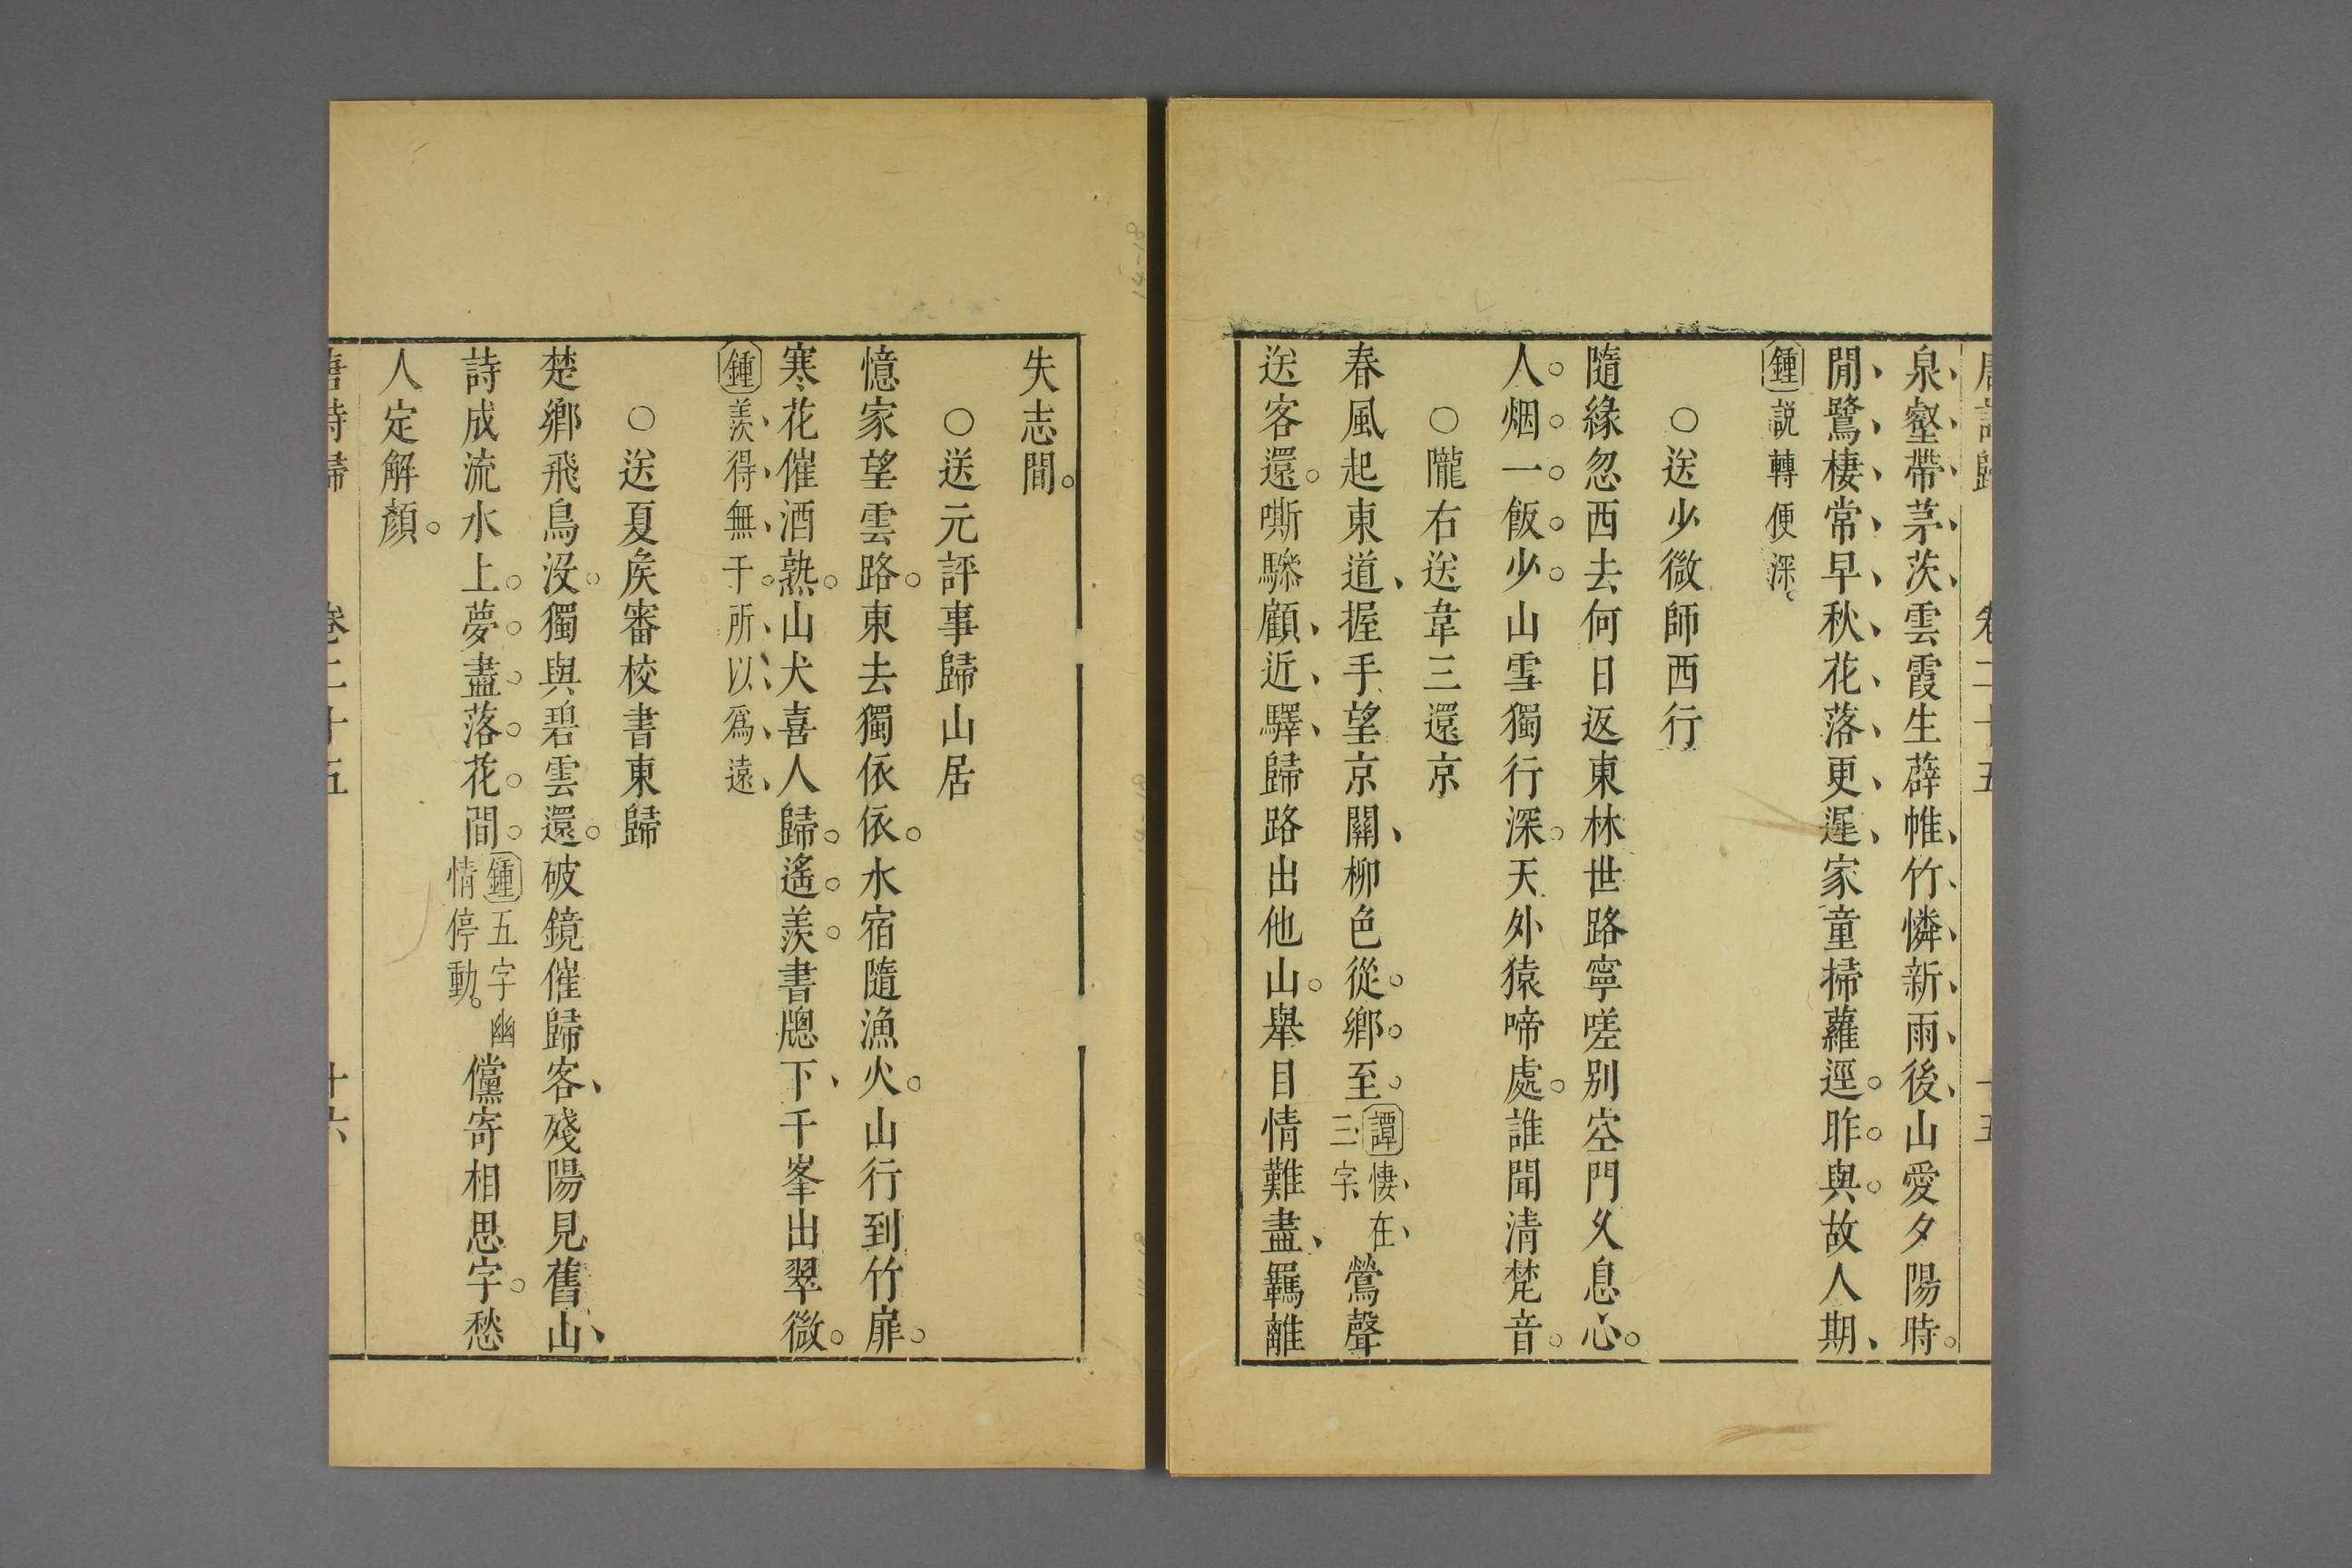 唐詩歸 卷二十五 十五
泉壑帶茅茨雲霞生薜帷竹憐新雨後山愛夕陽時
閒鷺棲常早秋花落更遲家童掃蘿逕昨與故人期
鍾說轉便深
○送少微師西行
隨緣忽西去何日返東林世路寧嗟別空門久息心
人烟一飯少山雪獨行深天外猿啼處誰聞清梵音
○隴右送韋三還京
春風起東道握手望京關柳色從鄉至譚悽在三字鶯聲
送客還嘶驂顧近驛歸路出他山舉目情難盡羈離
失志間
○送元評事歸山居
憶家望雲路東去獨依依水宿隨漁火山行到竹扉
寒花催酒熟山犬喜人歸遙羨書牕下千峯出翠微
鍾羨得無干所以爲遠
○送夏矦審校書東歸
楚鄉飛鳥沒獨與碧雲還破鏡催歸客殘陽見舊山
詩成流水上夢盡落花間鍾五字幽情停動儻寄相思字愁
人定解顏
唐詩歸 卷二十五 十六